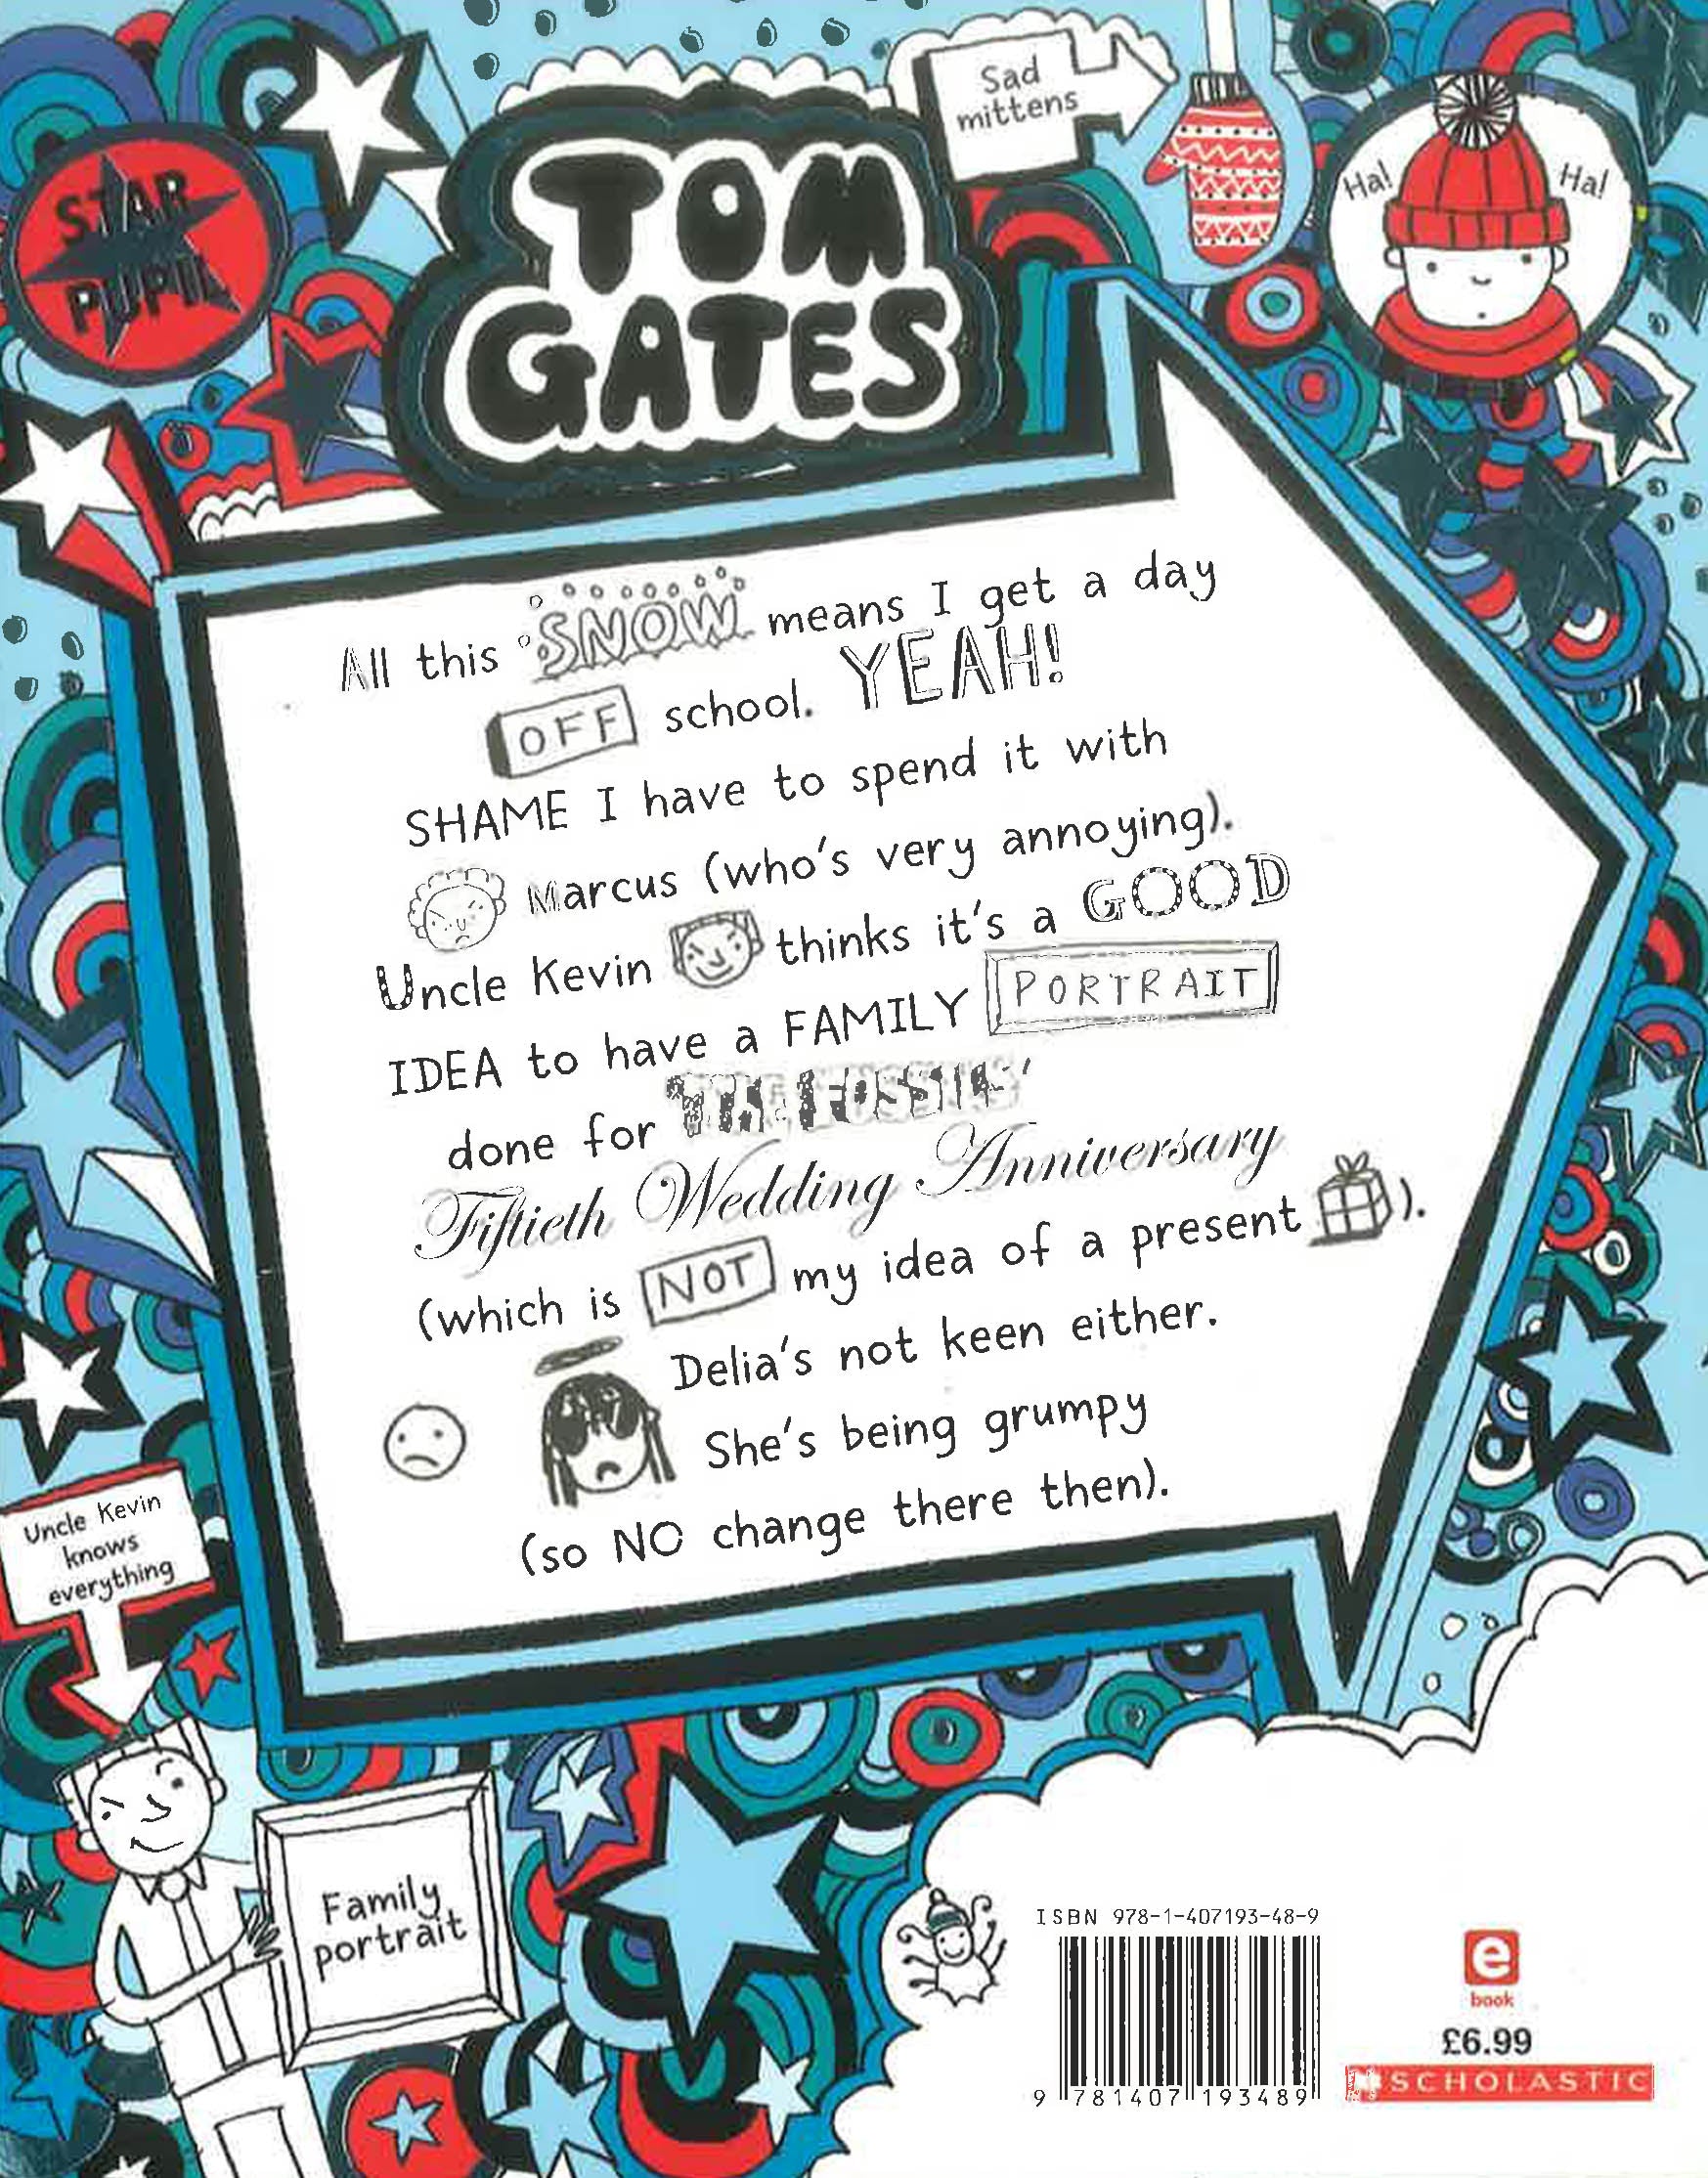 Sad
mittens
Ha!
Ha!
STAR
PUPIL
TOM
GATES
All this SNOW means I get a day
OFF school. YEAH!
SHAME I have to spend it with
Marcus (who's very annoying).
Uncle Kevin thinks it's a GOOD
IDEA to have a FAMILY PORTRAIT
done for 'THE FOSSILS'
Fiftieth Wedding Anniversary
(which is NOT my idea of a present ).
Delia's not keen either.
She's being grumpy
(so NO change there then).
Uncle Kevin
knows
everything
Family
portrait
ISBN 978-1-407193-48-9
9 781407 193489
e
book
£6.99
SCHOLASTIC